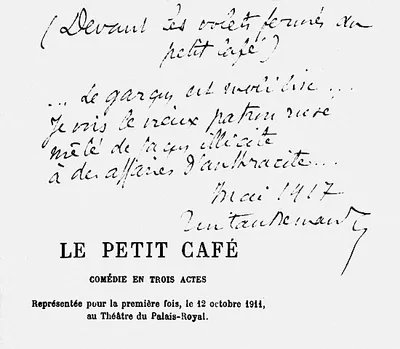 (Devant les volets fermés du
petit café)
... Le garçon est mobilisé...
Je vois le vieux patron russe
mêlé de façon illicite
à des affaires d'anthracite...
Mai 1917
LE PETIT CAFÉ
COMÉDIE EN TROIS ACTES
Représentée pour la première fois, le 12 octobre 1911,
au Théâtre du Palais-Royal.